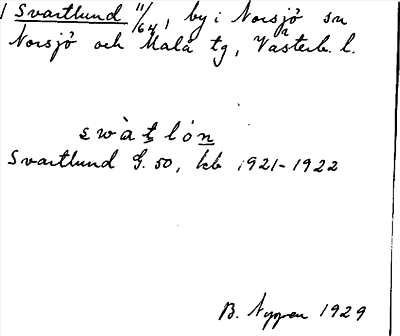 Svartlund 11/64, by i Norsjö sn
Norsjö och Malå tg, Västerb. l.
swàt̲ lón̲
Svartlund G. 50, kb 1921-1922
B. Nygren 1929